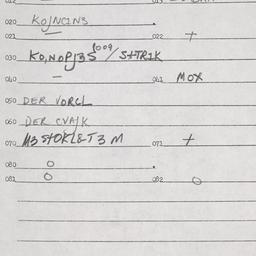 020 KO/NC1N3
021 — 022 +
030 KO,NOPJ3S foog/S+TR1K
040 — 041 MOX
050 DER VORCL
060 DER CVA/K
070 M3 S+OKL&T3 M 071 +
080 O
081 O 082 O